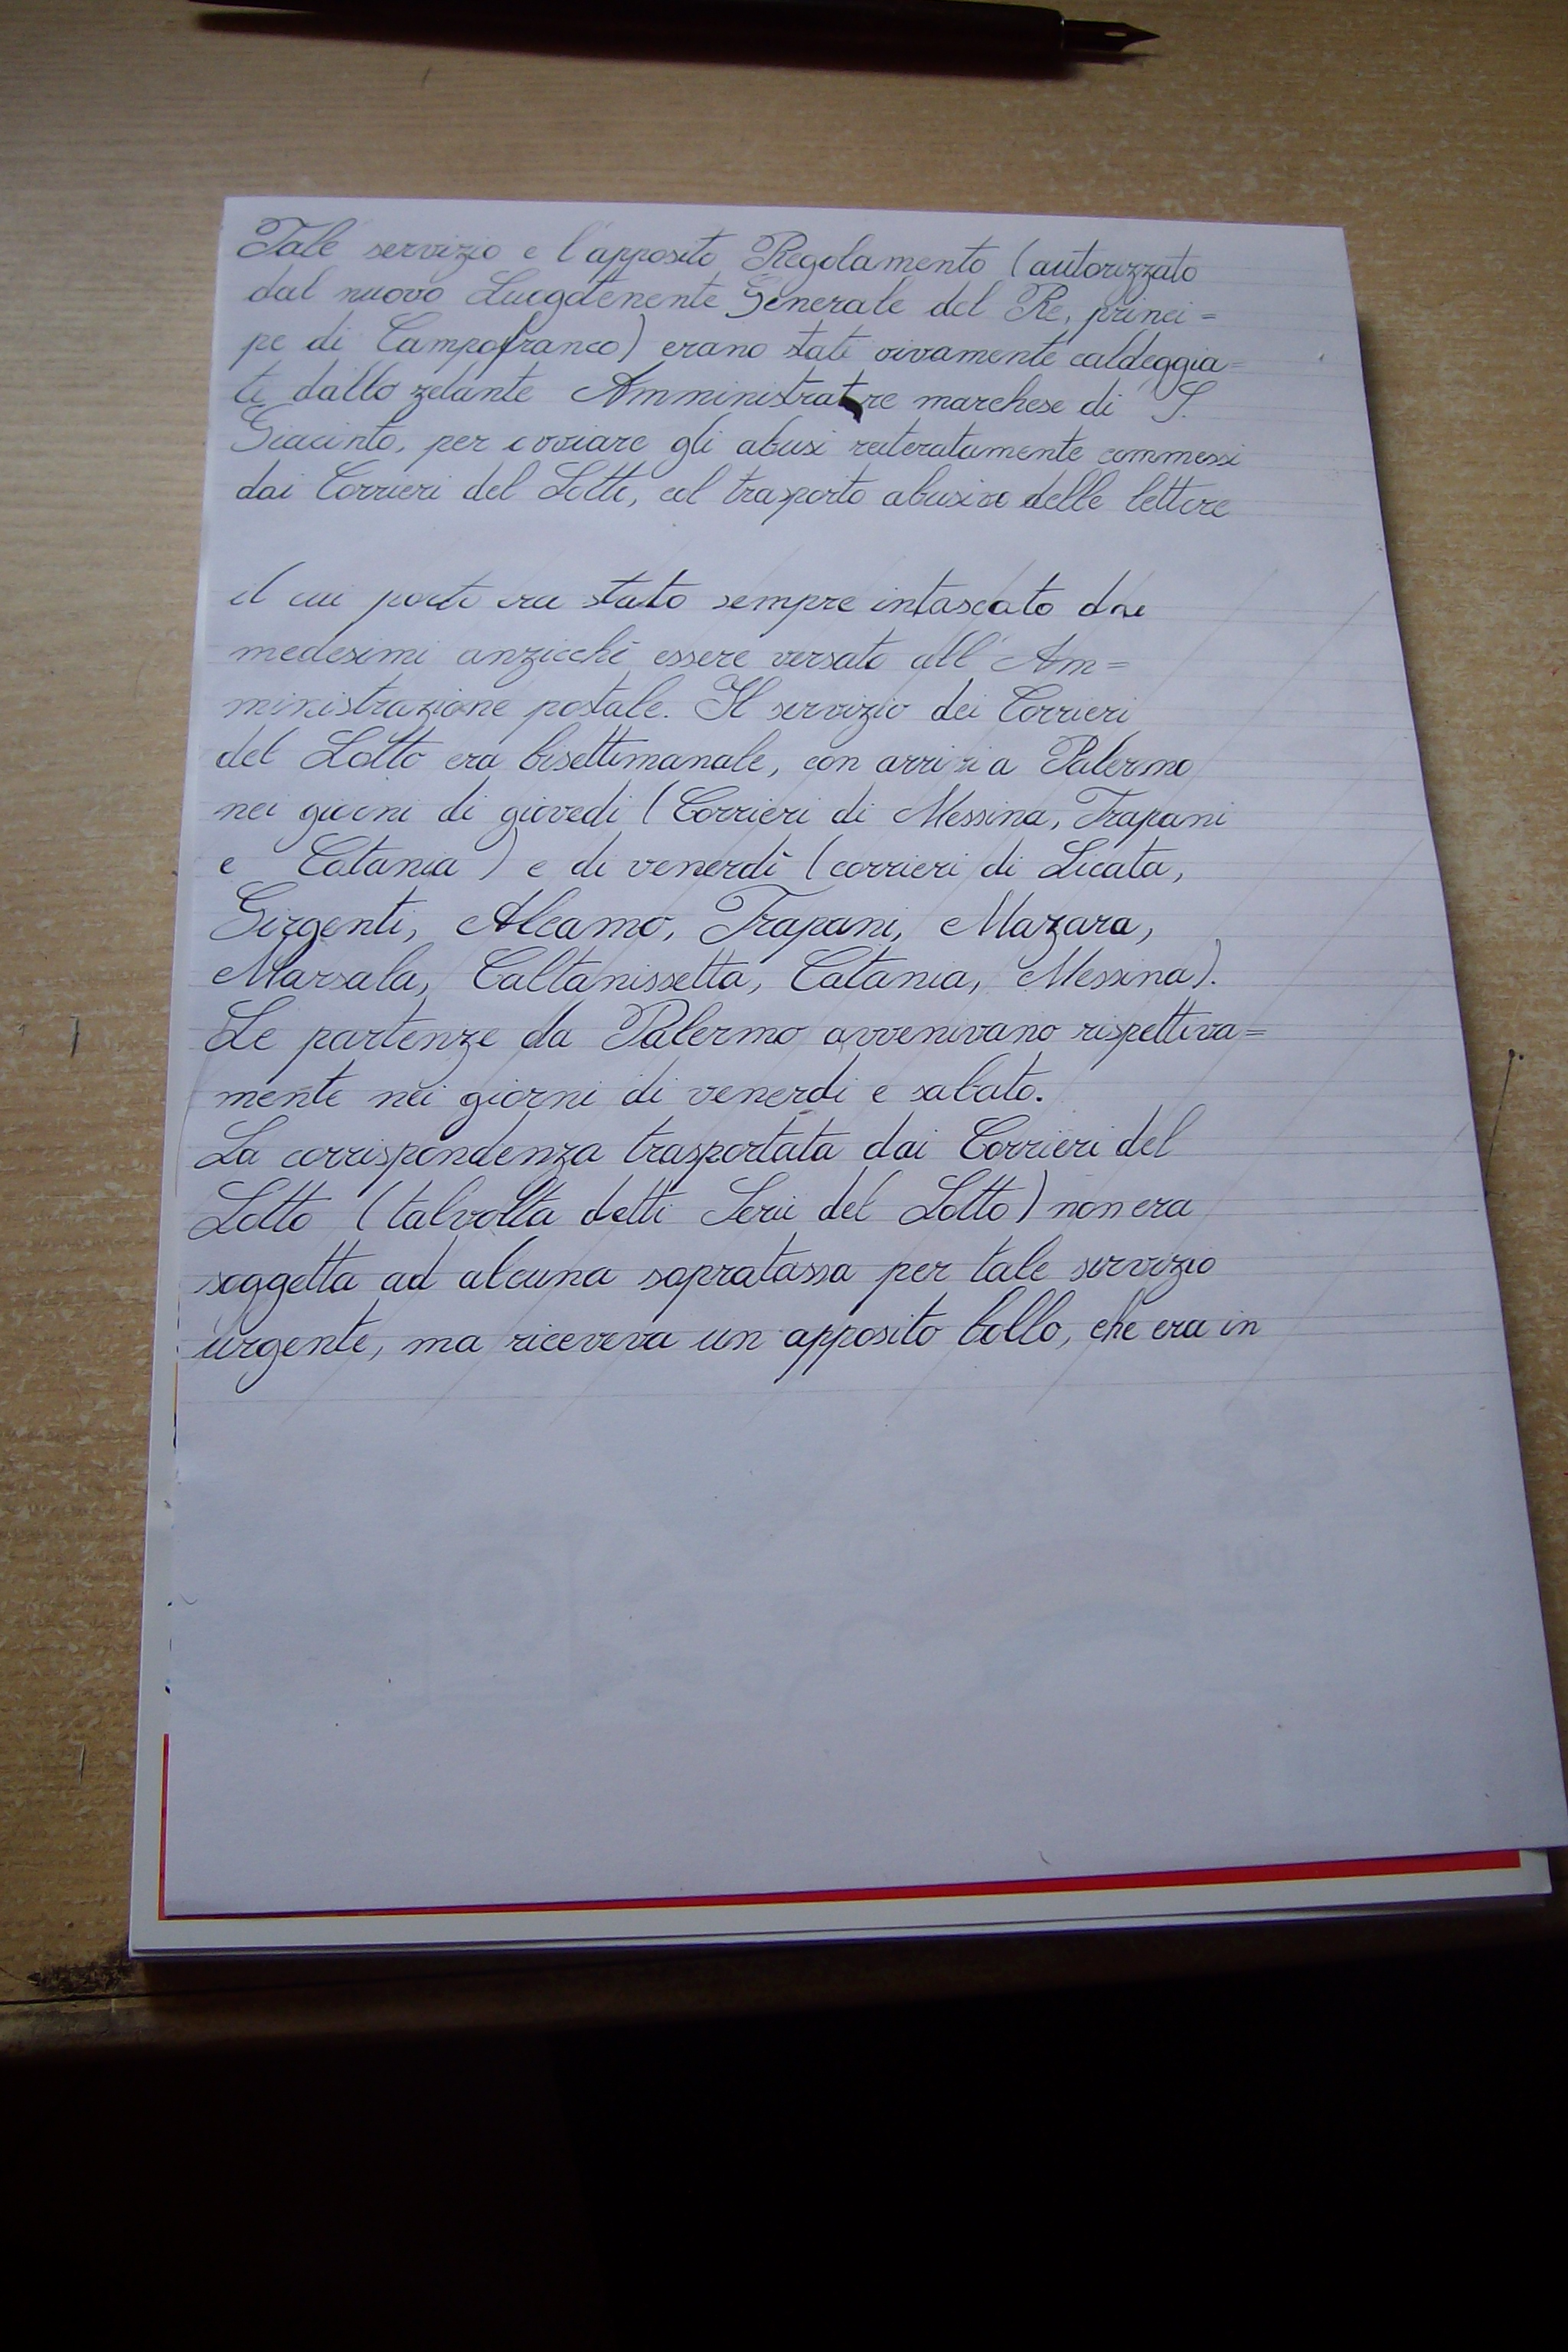 Tale servizio e l'apposito Regolamento (autorizzato
dal nuovo Luogotenente Generale del Re, princi=
pe di Campofranco) erano stati vivamente caldeggia=
ti dallo zelante Amministratore marchese di S.
Giacinto, per ovviare gli abusi reiteratamente commessi
dai Corrieri del Lotto, col trasporto abusivo delle lettere
il cui porto era stato sempre intascato dai
medesimi anzicchè essere versato all'Am=
ministrazione postale. Il servizio dei Corrieri
del Lotto era bisettimanale, con arrivi a Palermo
nei giorni di giovedì (Corrieri di Messina, Trapani
e Catania) e di venerdì (corrieri di Licata,
Girgenti, Alcamo, Trapani, Mazara,
Marsala, Caltanissetta, Catania, Messina).
Le partenze da Palermo avvenivano rispettiva=
mente nei giorni di venerdi e sabato.
La corrispondenza trasportata dai Corrieri del
Lotto (talvolta detti del Lotto) non era
soggetta ad alcuna sopratassa per tale servizio
urgente, ma riceveva un apposito bollo, che era in